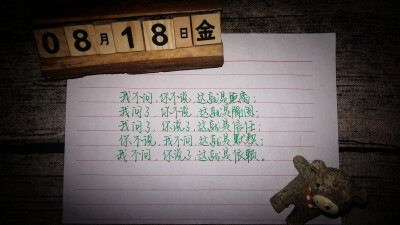 08月18日金
我不问，你不说，这就是距离；
我问了，你不说，这就是隔阂；
我问了，你说了，这就是信任；
你不说，我不问，这就是默契；
我不问，你说了，这就是依赖。